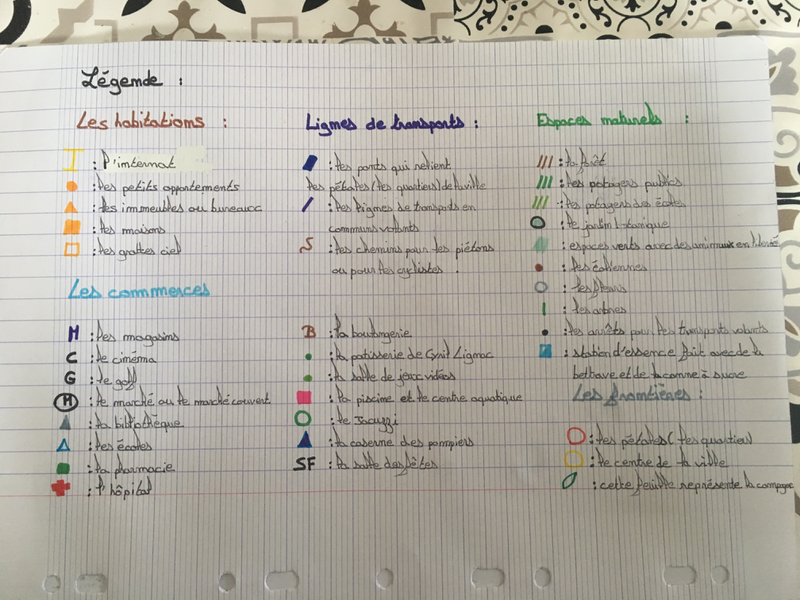 Légende :
Les habitations :
I : l'internat
: les petits appartements
: les immeubles ou bureaux
: les maisons
: les grattes ciel
Les commerces
M : les magasins
C : le cinéma
G : le golf
M : le marché ou le marché couvert
: la bibliothèque
: les écoles
: la pharmacie
: l'hôpital
Lignes de transports :
: les ponts qui relient
les pétales (les quartiers) de la ville
: les lignes de transports en
communs volants
: les chemins pour les piétons
ou pour les cyclistes.
B : la boulangerie
: la patisserie de Cyril Lignac
: la salle de jeux vidéos
: la piscine et le centre aquatique
: le Jacuzzi
: la caserne des pompiers
SF : la salle des fêtes
Espaces naturels :
: la forêt
: les potagers publics
: les potagers des écoles
: le jardin botanique
: espaces verts avec des animaux en liberté
: les éoliennes
: les fleurs
: les arbres
: les arrêts pour les transports volants
: station d'essence fait avec de la
betterave et de la canne à sucre
Les frontières :
: les pétales (les quartiers)
: le centre de la ville
: cette feuille représente la campagne